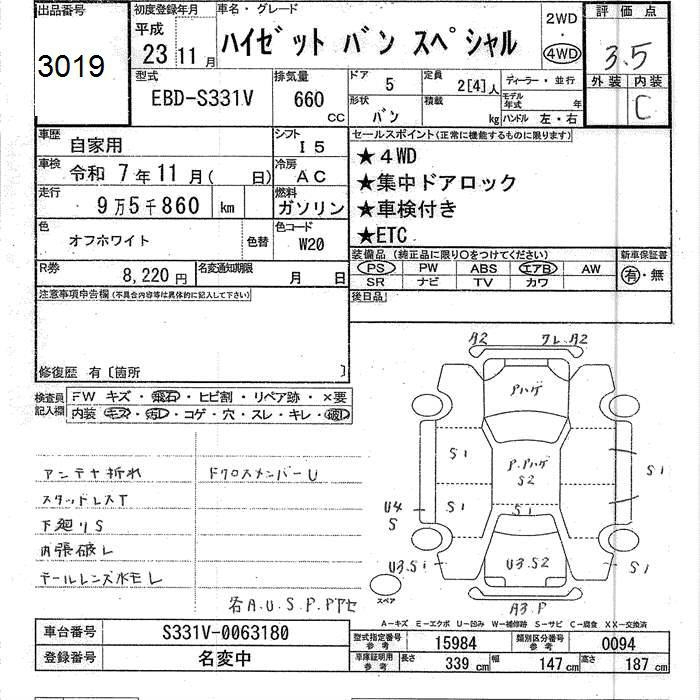 出品番号
3019
初度登録年月
平成
23 11 月
車名・グレード
ハイゼット バン スペシャル
2WD
・
4WD
評価点
3.5
外装 内装
C
型式
EBD-S331V
排気量
660
CC
ドア
5
定員
2[4]人
ディーラー・並行
形状
バン
積載
kg
モデル年式
年
ハンドル 左・右
車歴
自家用
シフト
I5
車検
令和 7年 11月( 日)
冷房
AC
走行
9万5千860 km
燃料
ガソリン
色
オフホワイト
色替
色コード
W20
R券
8,220円
名変通知期限
月 日
セールスポイント(正常に機能するものに限ります)
★4WD
★集中ドアロック
★車検付き
★ETC
装備品(純正品に限り○をつけてください)
新車保証書
PS PW ABS エアB AW
SR ナビ TV カワ
有・無
後日品
注意事項申告欄(不具合内容等は具体的に記入して下さい)
修復歴 有〔箇所 〕
検査員
記入欄
FW キズ・飛石・ヒビ割・リペア跡・×要
内装 キズ・汚レ・コゲ・穴・スレ・キレ・破レ
アンテナ折れ
ドクロスメンバーU
スタッドレスT
下廻りS
内張破レ
テールレンズ水モレ
各A.U.S.P.Pアセ
A2
フレ.A2
Pハゲ
S1
P.Pハゲ
S2
S1
S1
S1
U4
S
U3.S1
U3.S2
S1
A3.P
スペア
A-キズ E-エクボ U-凹み W-補修跡 S-サビ C-腐食 XX-交換済
車台番号
S331V-0063180
登録番号
名変中
型式指定番号
参考
15984
類別区分番号
参考
0094
車庫証明用
参考
長さ
339 cm
幅
147 cm
高さ
187 cm